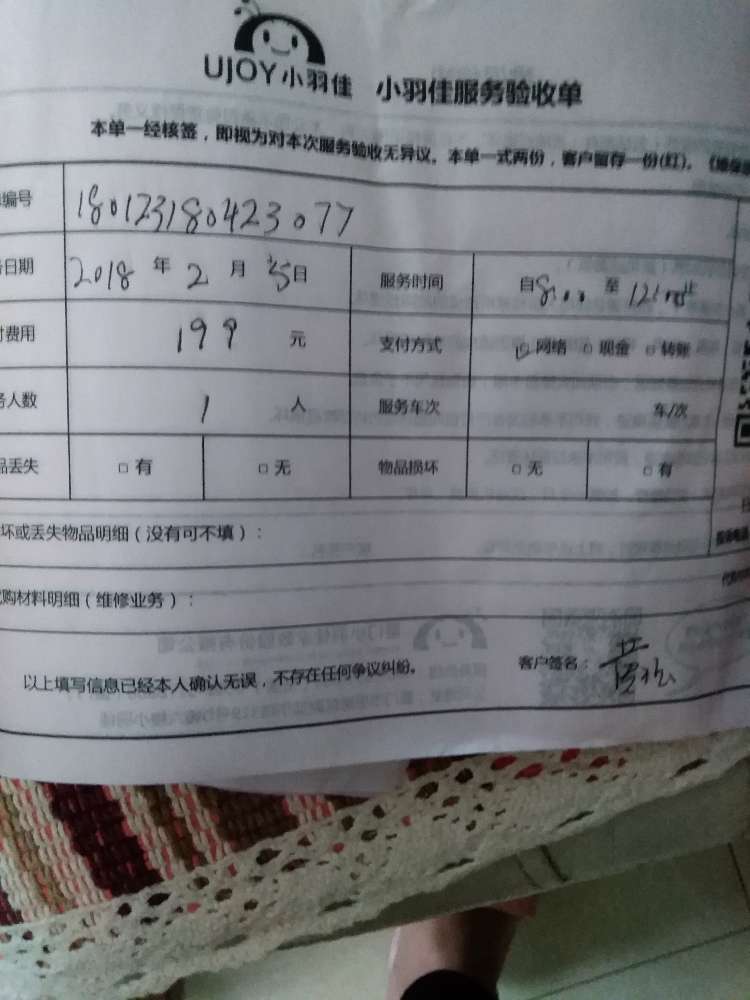 UJOY小羽佳 小羽佳服务验收单
本单一经核签，即视为对本次服务验收无异议。本单一式两份，客户留存一份(红)。
编号 18012318042307 7
日期 2018 年 2 月 日 服务时间 自8:00 至 12:00止
费用 199 元 支付方式 ☑网络 □现金 □转账
人数 1 人 服务车次 车/次
品丢失 □有 □无 物品损坏 □无 □有
坏或丢失物品明细（没有可不填）：
购材料明细（维修业务）：
以上填写信息已经本人确认无误，不存在任何争议纠纷。 客户签名：